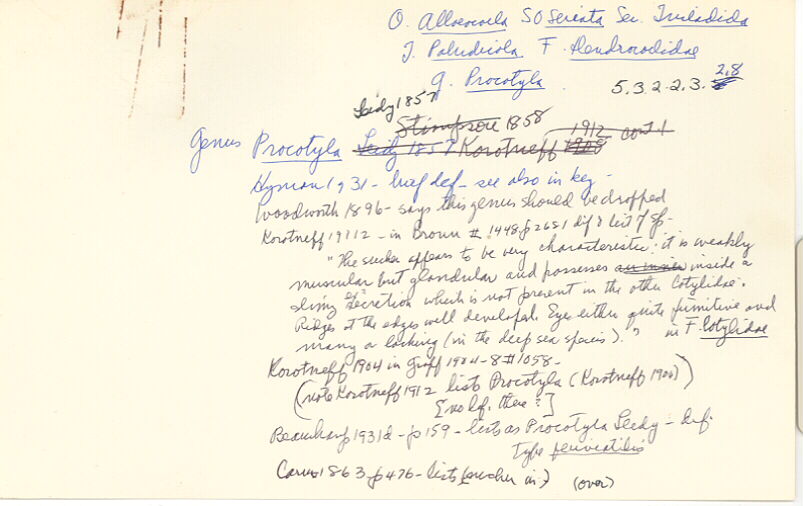 O. Alloeocoela SO Seriata Sec. Tricladida
T. Paludicola F. Dendrocoelidae
g. Procotyla 5.3.2.2.3. 2.8
Leidy 1857
Stimpson 1858
Genus Procotyla Leidy 1857 Korotneff 1908 1912 cont
Hyman 1931 - brief def - see also in key -
Woodworth 1896 - says this genus should be dropped
Korotneff 19112 - in Brown # 1448 p 2651 dif & list of sp -
"The sucker appears to be very characteristic: it is weakly
muscular but glandular and possesses inside a
slimy secretion which is not present in the other Cotylidae.
Ridges at the edges well developed. Eyes either quite primitive and
many or lacking (in the deep sea species)." in F. Cotylidae
Korotneff 1904 in Graff 1904 - 8 # 1058 -
(note Korotneff 1912 lists Procotyla (Korotneff 1900))
[no df. there?]
Beauchamp 1931d - p 159 - lists as Procotyla Leidy - def.
Type fluviatilis
Carus 1863 p 476 - lists (sucker in) (over)